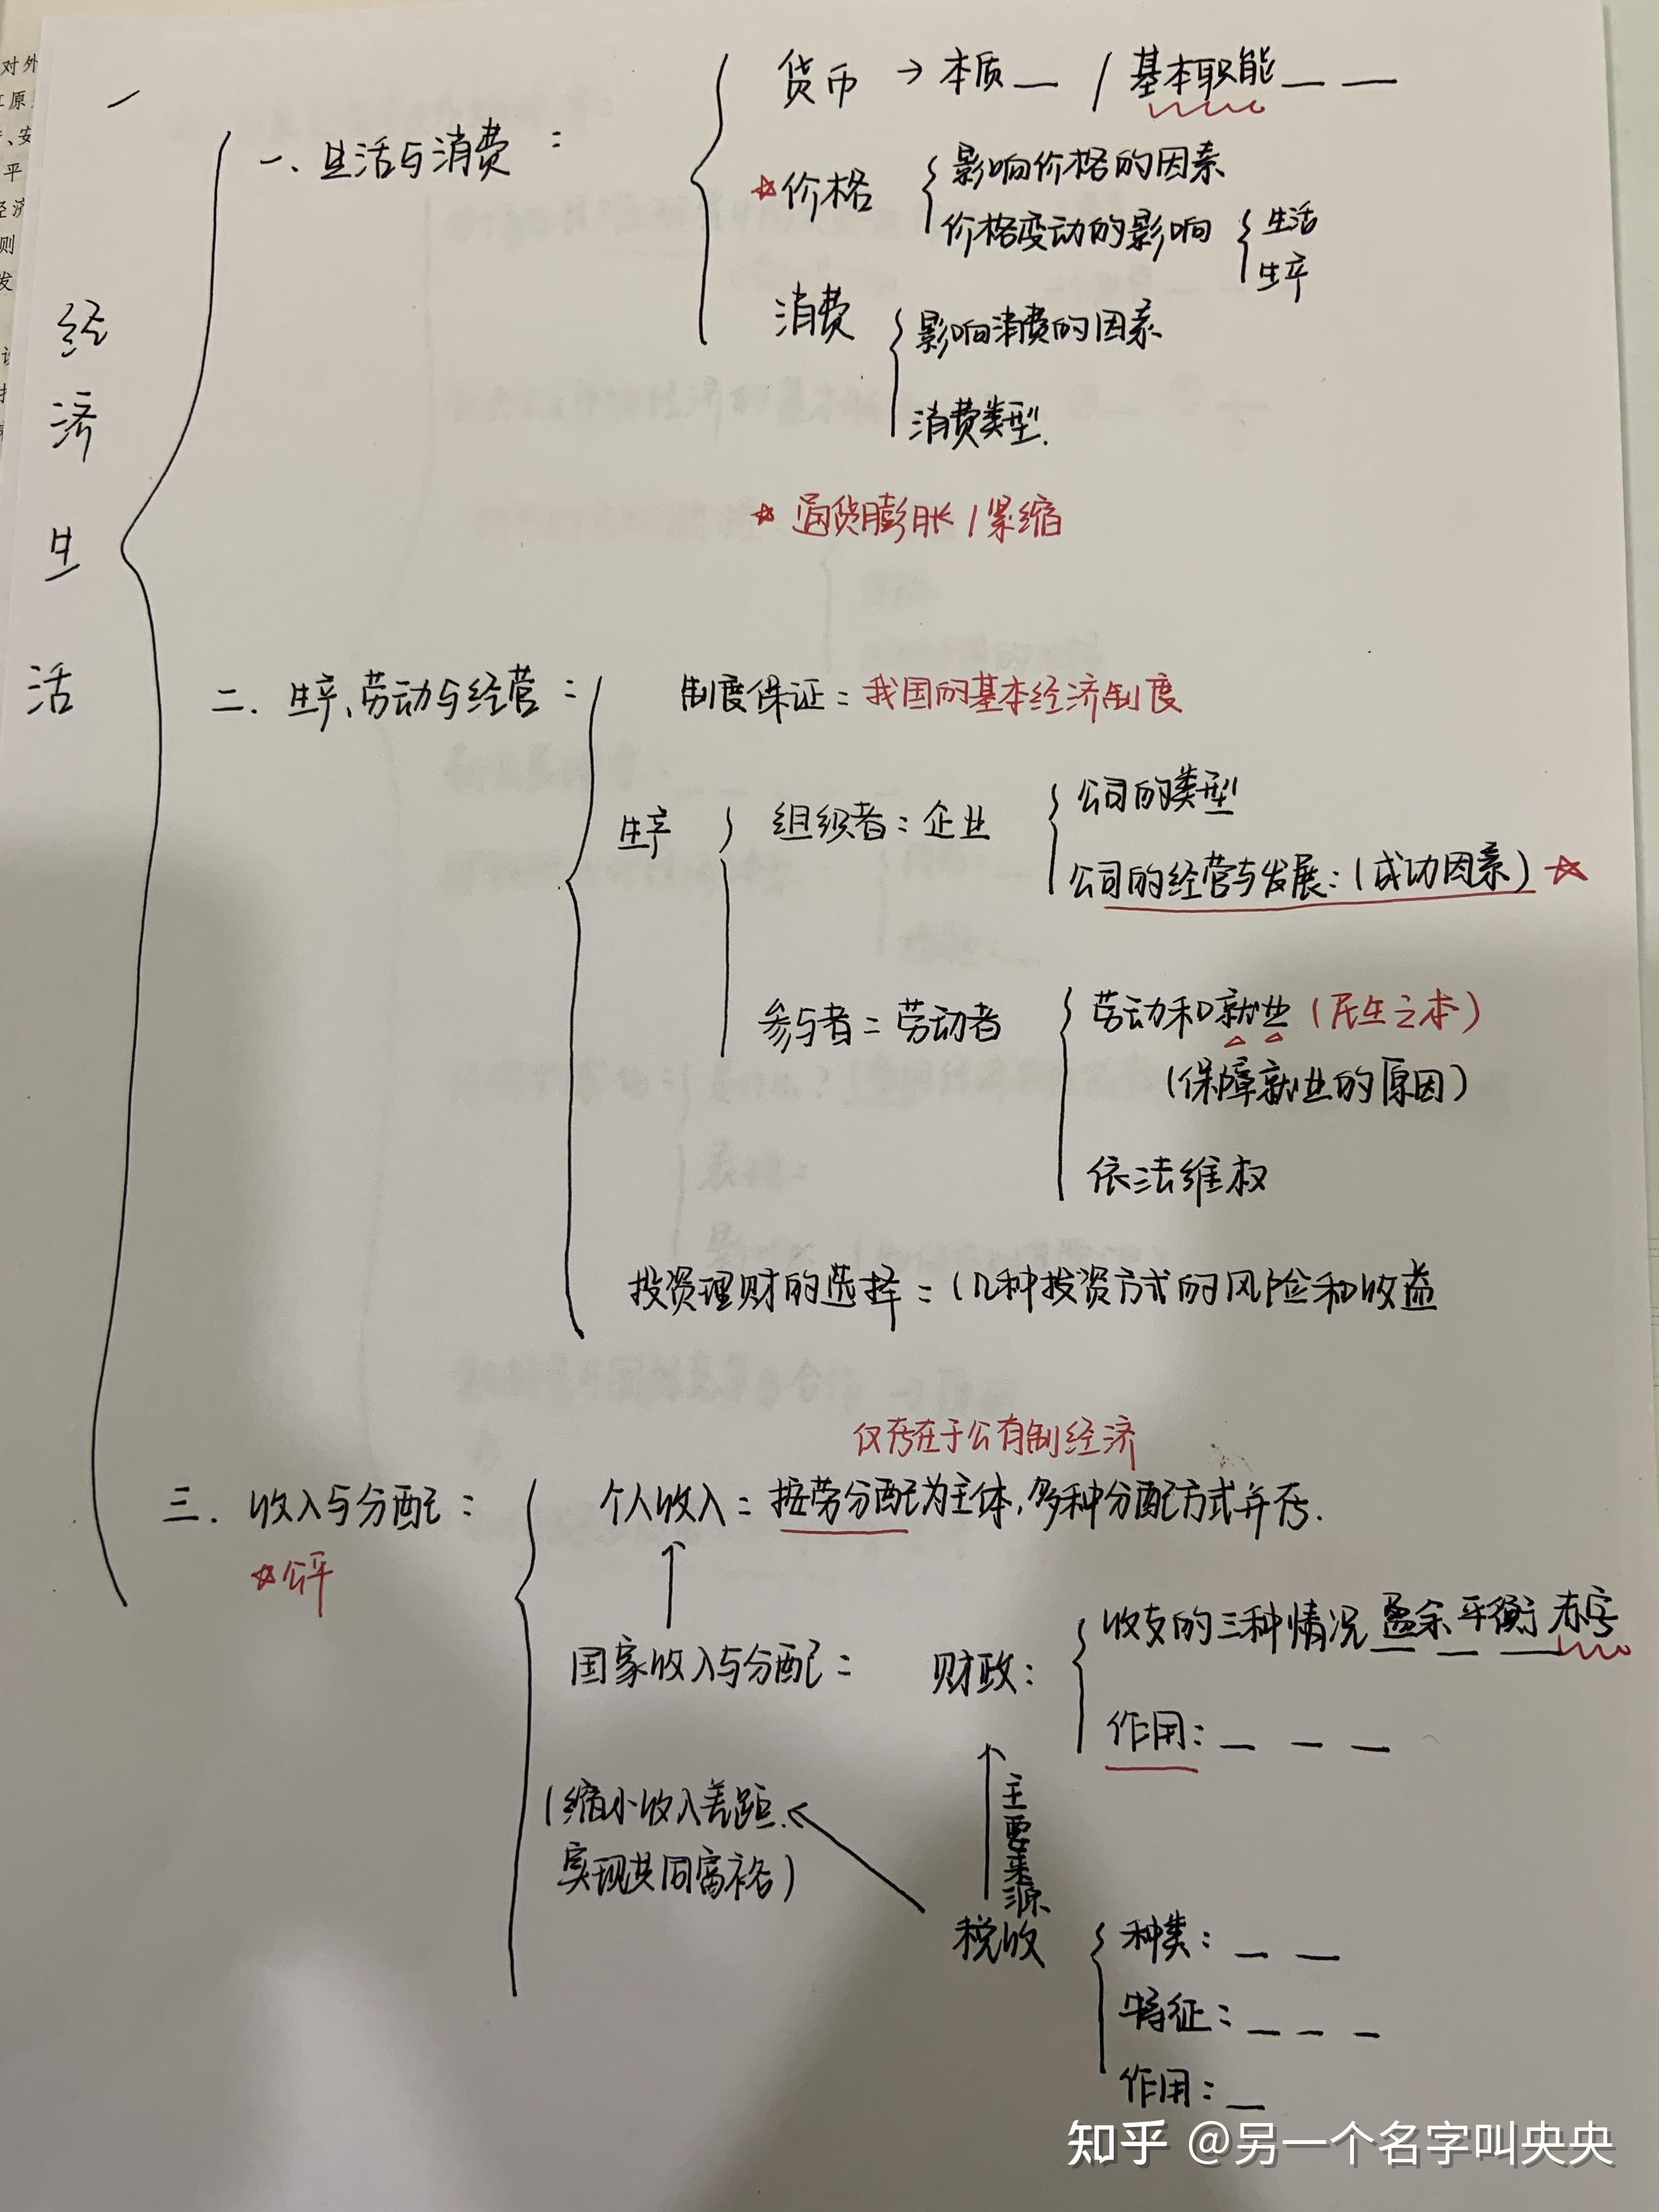 经济生活
一、生活与消费：
货币 → 本质_ / 基本职能_ _
☆价格
影响价格的因素
价格变动的影响
生活
生产
消费
影响消费的因素
消费类型.
☆ 通货膨胀 / 紧缩
二. 生产、劳动与经营：
制度保证：我国的基本经济制度
生产
组织者：企业
公司的类型
公司的经营与发展：(成功因素) ☆
参与者：劳动者
劳动和就业 (民生之本)
(保障就业的原因)
依法维权
投资理财的选择：(几种投资方式的风险和收益
三. 收入与分配：
☆公平
仅存在于公有制经济
个人收入：按劳分配为主体,多种分配方式并存.
国家收入与分配：
(缩小收入差距.
实现共同富裕)
财政：
收支的三种情况 盈余 平衡 赤字
作用：_ _ _
主要来源
税收
种类：_ _
特征：_ _ _
作用：_
知乎 @另一个名字叫央央